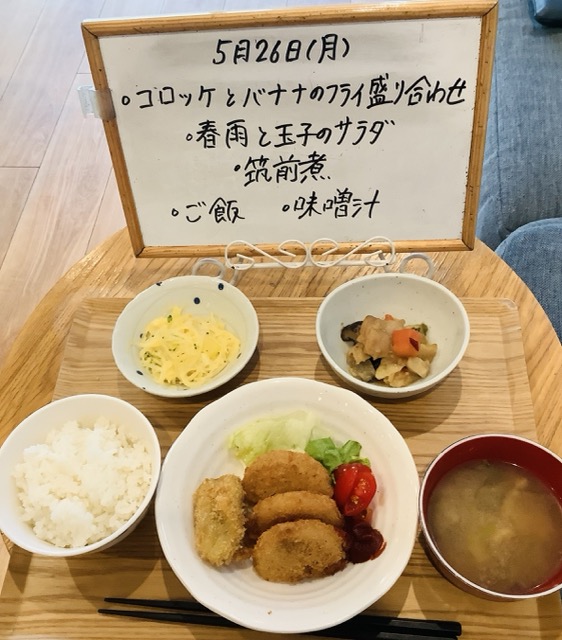 5月26日(月)
○コロッケとバナナのフライ盛り合わせ
○春雨と玉子のサラダ
○筑前煮
○ご飯 ○味噌汁